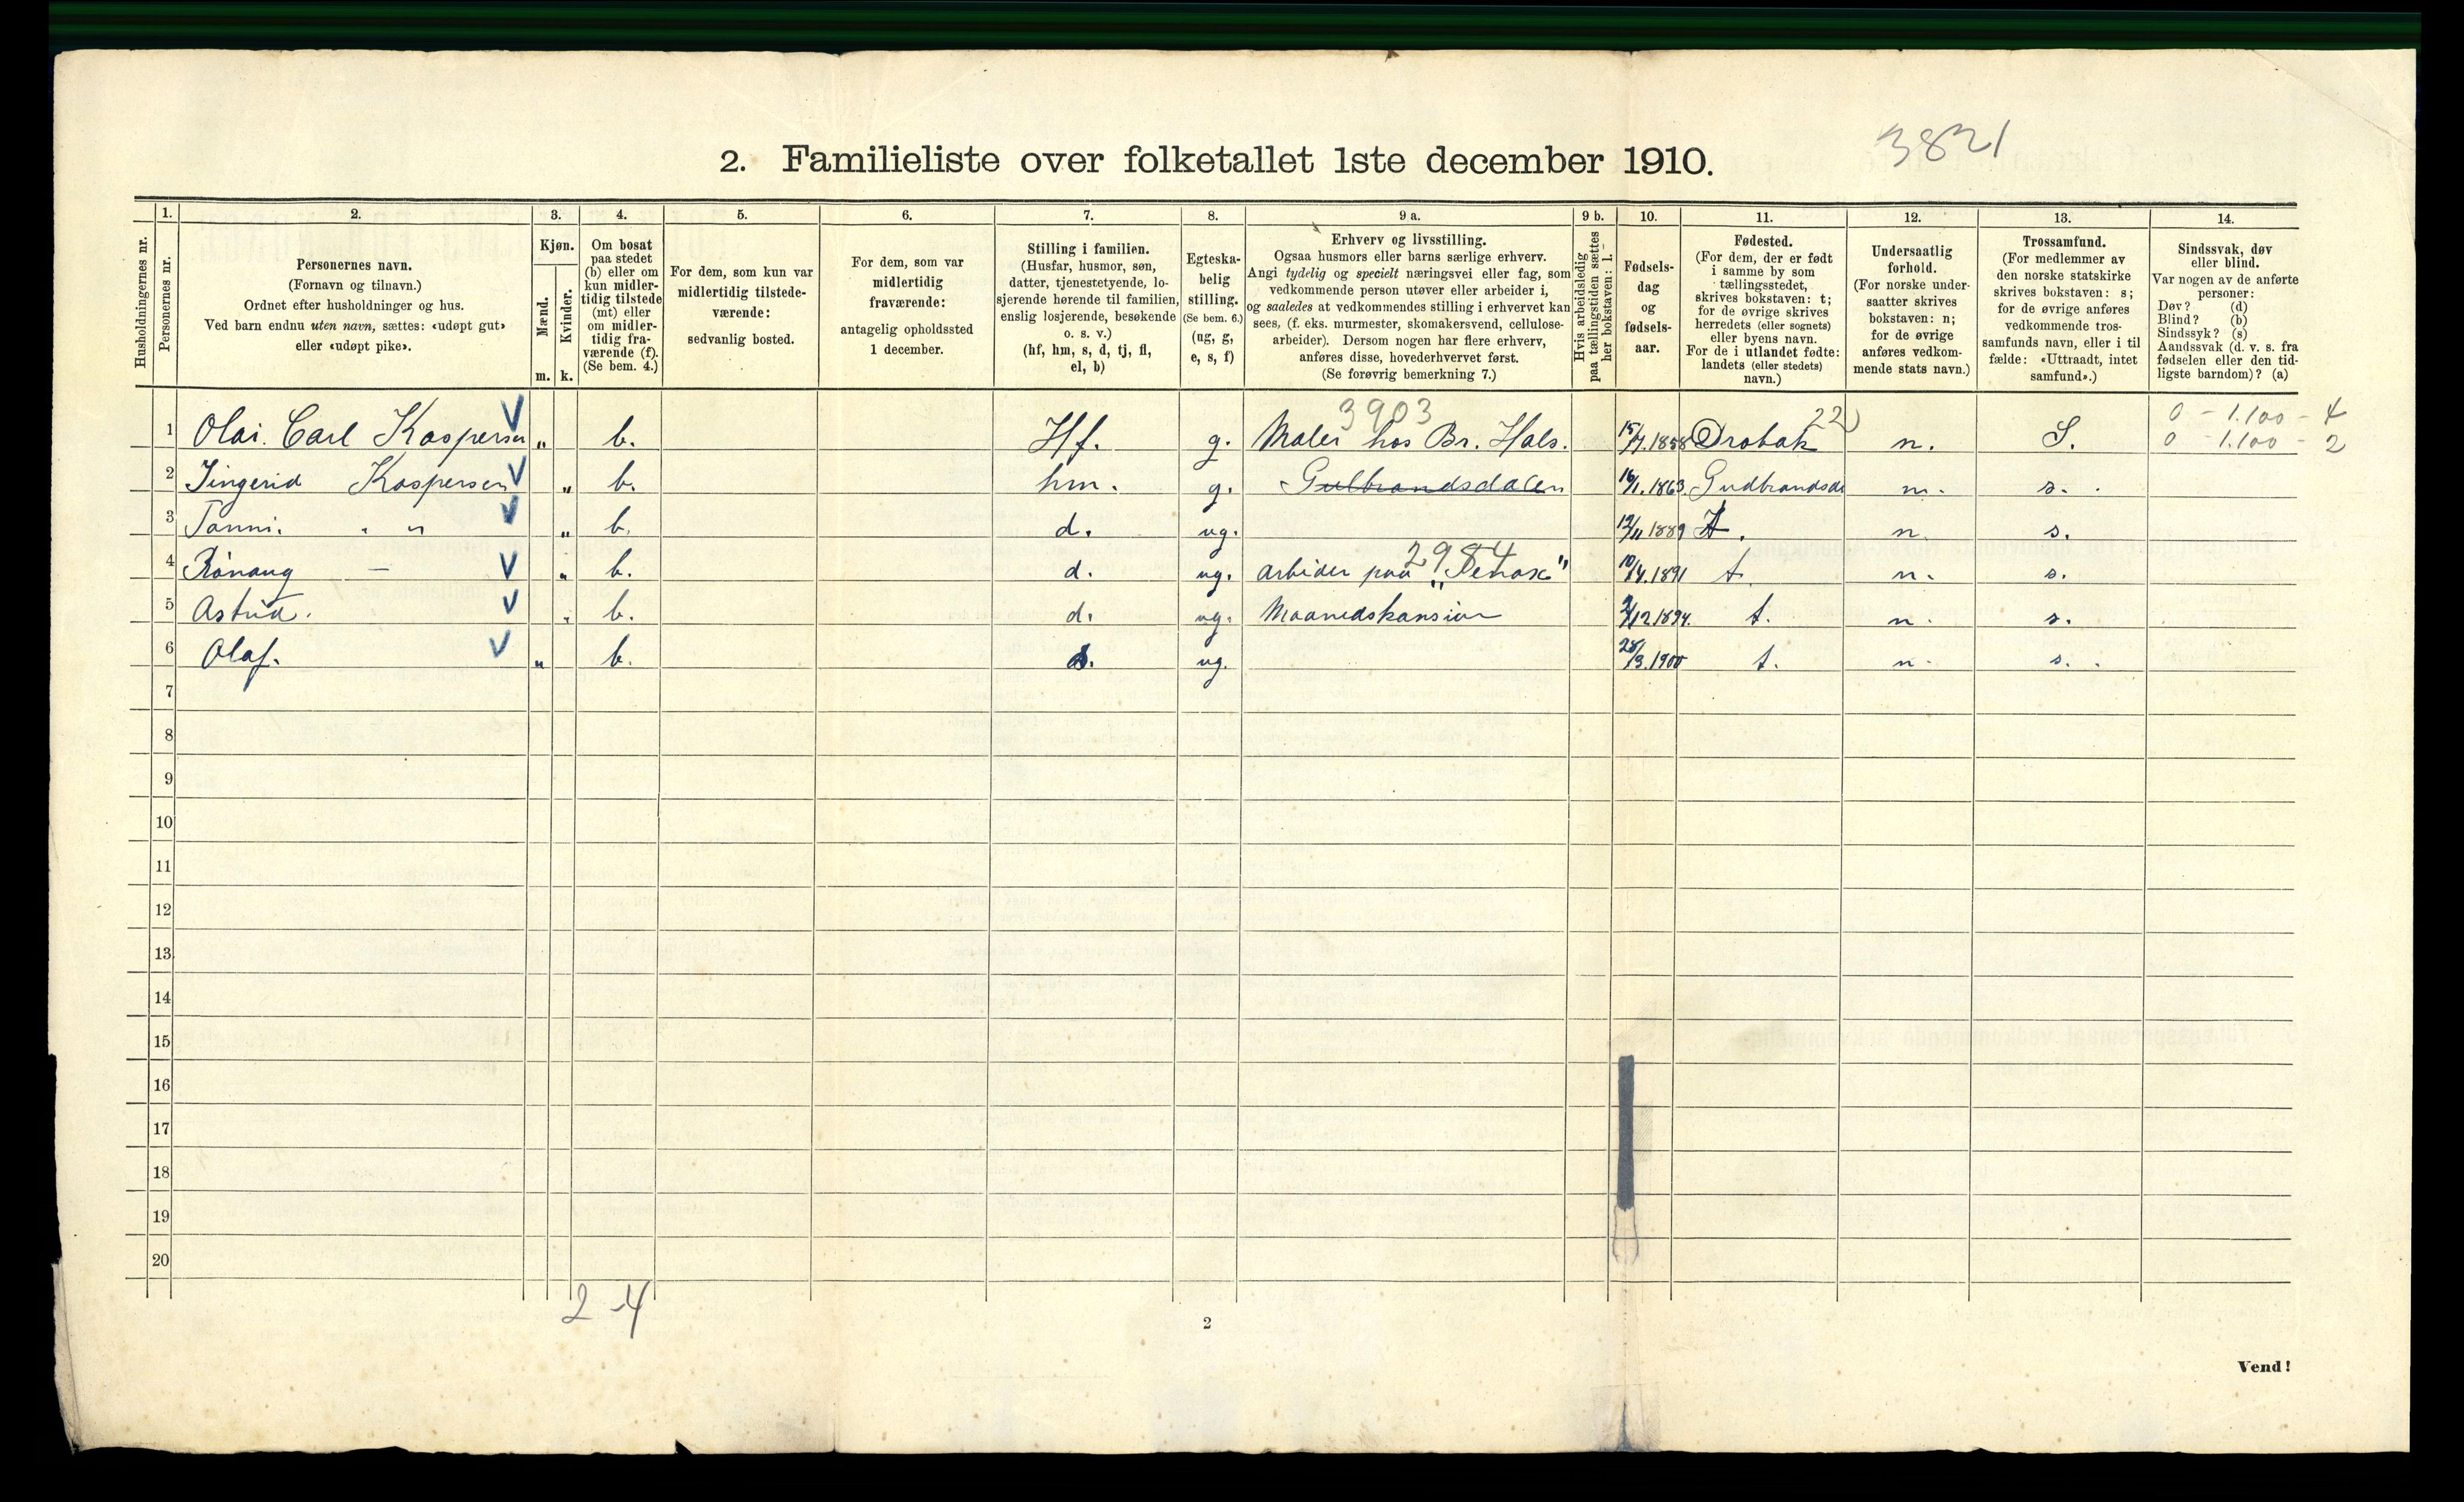 3821
2. Familieliste over folketallet 1ste december 1910.
1. 2. 3. 4. 5. 6. 7. 8. 9 a. 9 b. 10. 11. 12. 13. 14.
Husholdningernes nr.
Personernes nr.
Personernes navn.
(Fornavn og tilnavn.)
Ordnet efter husholdninger og hus.
Ved barn endnu uten navn, sættes: «udøpt gut»
eller «udøpt pike».
Kjøn.
Mænd.
Kvinder.
m. k.
Om bosat
paa stedet
(b) eller om
kun midler-
tidig tilstede
(mt) eller
om midler-
tidig fra-
værende (f).
(Se bem. 4.)
For dem, som kun var
midlertidig tilstede-
værende:
sedvanlig bosted.
For dem, som var
midlertidig
fraværende:
antagelig opholdssted
1 december.
Stilling i familien.
(Husfar, husmor, søn,
datter, tjenestetyende, lo-
sjerende hørende til familien,
enslig losjerende, besøkende
o. s. v.)
(hf, hm, s, d, tj, fl,
el, b)
Egteska-
belig
stilling.
(Se bem. 6.)
(ug, g,
e, s, f)
Erhverv og livsstilling.
Ogsaa husmors eller barns særlige erhverv.
Angi tydelig og specielt næringsvei eller fag, som
vedkommende person utøver eller arbeider i,
og saaledes at vedkommendes stilling i erhvervet kan
sees, (f. eks. murmester, skomakersvend, cellulose-
arbeider). Dersom nogen har flere erhverv,
anføres disse, hovederhvervet først.
(Se forøvrig bemerkning 7.)
Hvis arbeidsledig
paa tællingstiden sættes
her bokstaven: l.
Fødsels-
dag
og
fødsels-
aar.
Fødested.
(For dem, der er født
i samme by som
tællingsstedet,
skrives bokstaven: t;
for de øvrige skrives
herredets (eller sognets)
eller byens navn.
For de i utlandet fødte:
landets (eller stedets)
navn.)
Undersaatlig
forhold.
(For norske under-
saatter skrives
bokstaven: n;
for de øvrige
anføres vedkom-
mende stats navn.)
Trossamfund.
(For medlemmer av
den norske statskirke
skrives bokstaven: s;
for de øvrige anføres
vedkommende tros-
samfunds navn, eller i til
fælde: «Uttraadt, intet
samfund».)
Sindssvak, døv
eller blind.
Var nogen av de anførte
personer:
Døv? (d)
Blind? (b)
Sindssyk? (s)
Aandssvak (d. v. s. fra
fødselen eller den tid-
ligste barndom)? (a)
3903 22) 0 - 1.100 - 4
1 Olai. Carl Kaspersen V „ b. Hf. g. Maler hos Br. Hals. 15/7.1858 Drobak n. S. 0 - 1.100 - 2
2 Jingerid Kaspersen V „ b. hm. g. Gulbrandsdalen 16/1.1863. Gudbrandsda n. s.
3 V „ b. d. ug. 12/11 1889 t. n. s.
2984
4 Rönaug — V „ b. d. ug. arbeider paa „ " 10/4.1891 t. n. s.
5 Astrid. V „ b. d. ug. 2/12.1894. t. n. s.
6 Olaf. V „ b. s. ug. 28/3.1900 t. n. s.
7
8
9
10
11
12
13
14
15
16
17
18
19
20
2 - 4
2
Vend!